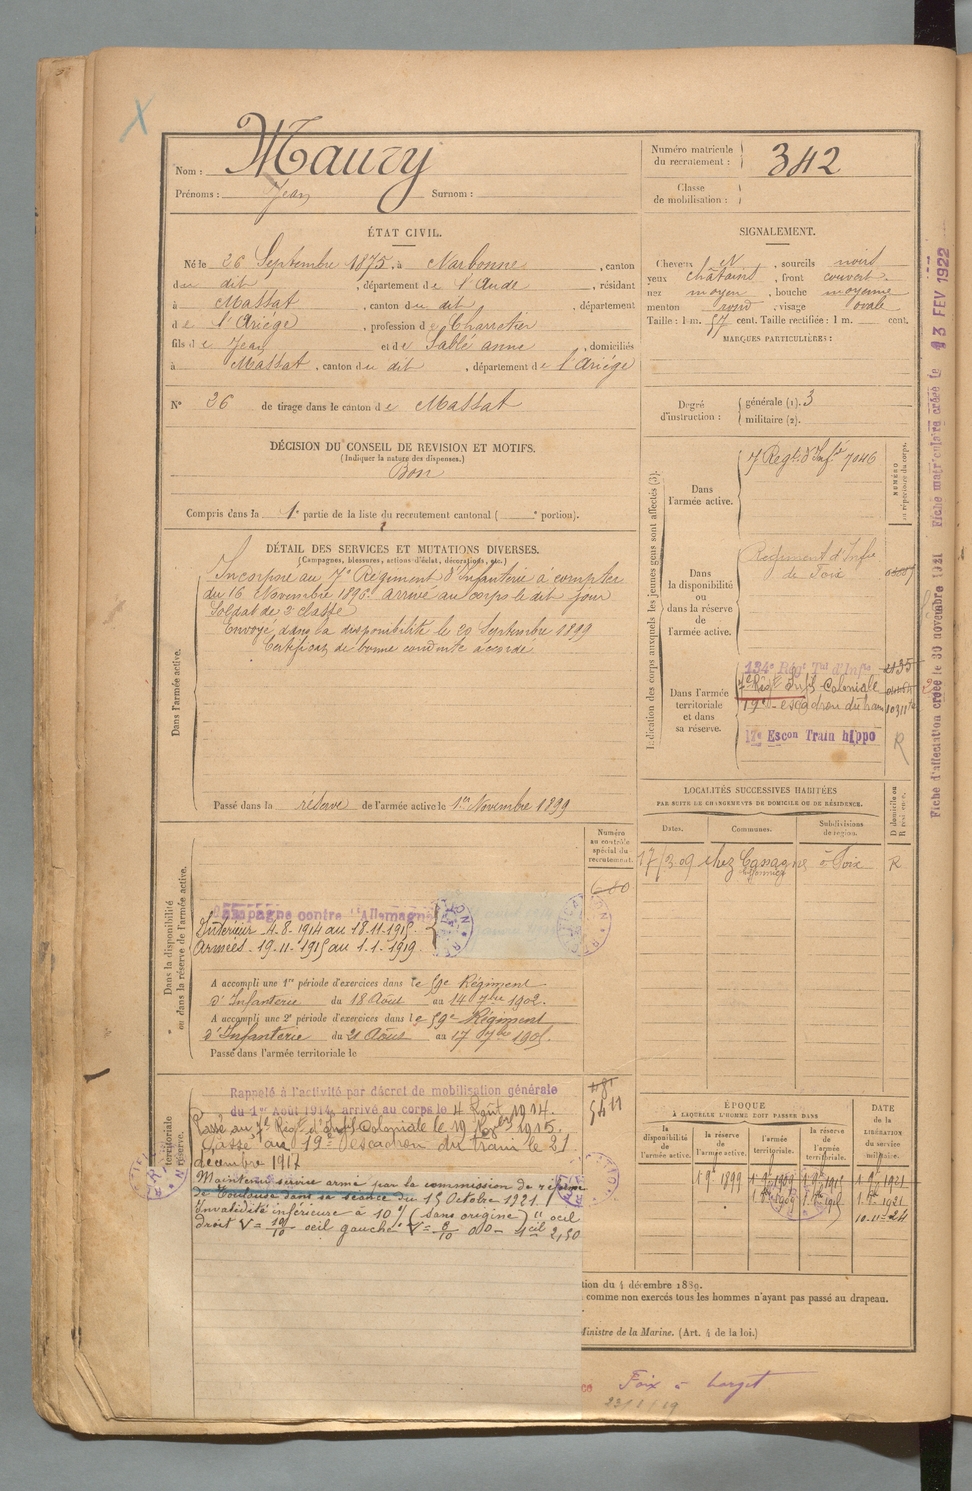 Nom : Maury
Prénoms : Jean Surnom :
Numéro matricule
du recrutement : 342
Classe
de mobilisation :
ÉTAT CIVIL.
Né le 26 Septembre 1875, à Narbonne, canton
du dit, département de l'Aude, résidant
à Massat, canton du dit, département
de l'Ariége, profession de Charretier
fils de Jean et de Sablé anne, domiciliés
à Massat, canton du dit, département de l'Ariége
N° 26 de tirage dans le canton de Massat
SIGNALEMENT.
Cheveux N, sourcils noirs
yeux châtains, front couvert
nez moyen, bouche moyenne
menton rond, visage ovale
Taille : 1 m. 57 cent. Taille rectifiée : 1 m. cent.
MARQUES PARTICULIÈRES :
Degré
d'instruction :
générale (1). 3
militaire (2).
DÉCISION DU CONSEIL DE REVISION ET MOTIFS.
(Indiquer la nature des dispenses.)
Bon
Compris dans la 1e partie de la liste du recrutement cantonal ( e portion).
DÉTAIL DES SERVICES ET MUTATIONS DIVERSES.
(Campagnes, blessures, actions d'éclat, décorations, etc.)
Dans l'armée active.
Incorporé au 7e Régiment d'Infanterie à compter
du 16 Novembre 1896. arrivé au corps le dit jour
Soldat de 2e classe
Envoyé dans la disponibilité le 20 Septembre 1899
Certificat de bonne conduite accordé
Passé dans la réserve de l'armée active le 1er Novembre 1899
Indication des corps auxquels les jeunes gens sont affectés (3).
Dans
l'armée active.
7 Regt d'Infie 7046
NUMÉRO
au répertoire du corps.
Dans
la disponibilité
ou
dans la réserve
de
l'armée active.
Regiment d'Infie
de Foix
Dans l'armée
territoriale
et dans
sa réserve.
134e Régt Tal d'Infie
7e Régt Inf. Coloniale
19e escadron du train
17e Escon Train hippo
R
LOCALITÉS SUCCESSIVES HABITÉES
PAR SUITE DE CHANGEMENTS DE DOMICILE OU DE RÉSIDENCE.
Dates. Communes. Subdivisions
de région.
D domicile ou
R résidence.
17/3 09 chez Cassagne à Foix R
Numéro
au contrôle
spécial du
recrutement.
Dans la disponibilité
ou dans la réserve de l'armée active.
Campagne contre l'Allemagne
Intérieur 4.8.1914 au 18.11.1915
Armées 19.11.1915 au 1.1.1919
A accompli une 1re période d'exercices dans le 59e Régiment
d'Infanterie du 18 Août au 14 7bre 1902.
A accompli une 2e période d'exercices dans le 59e Régiment
d'Infanterie du 21 Août au 17 7bre 1905.
Passé dans l'armée territoriale le
territoriale
réserve.
Rappelé à l'activité par décret de mobilisation générale
du 1er Août 1914, arrivé au corps le 4 Août 1914.
Passé au 7e Régt d'Inf. Coloniale le 19 Nobre 1915.
Passé au 19e Escadron du train le 21
décembre 1917
Maintenu service armé par la commission de réforme
de Toulouse dans sa séance du 15 Octobre 1921.
Invalidité inférieure à 10% (sans origine) "oeil
droit V = 10/10 oeil gauche V =
5411
ÉPOQUE
À LAQUELLE L'HOMME DOIT PASSER DANS
la
disponibilité
de
l'armée active.
la réserve
de
l'armée active.
l'armée
territoriale.
la réserve
de
l'armée
territoriale.
DATE
de la
LIBÉRATION
du service
militaire.
19bre 1899
10-11-24
tion du 4 décembre 1889.
comme non exercés tous les hommes n'ayant pas passé au drapeau.
Ministre de la Marine. (Art. 4 de la loi.)
Fiche d'affectation créée le 30 novembre 1921 Fiche matriculaire créée le 13 FEV 1922